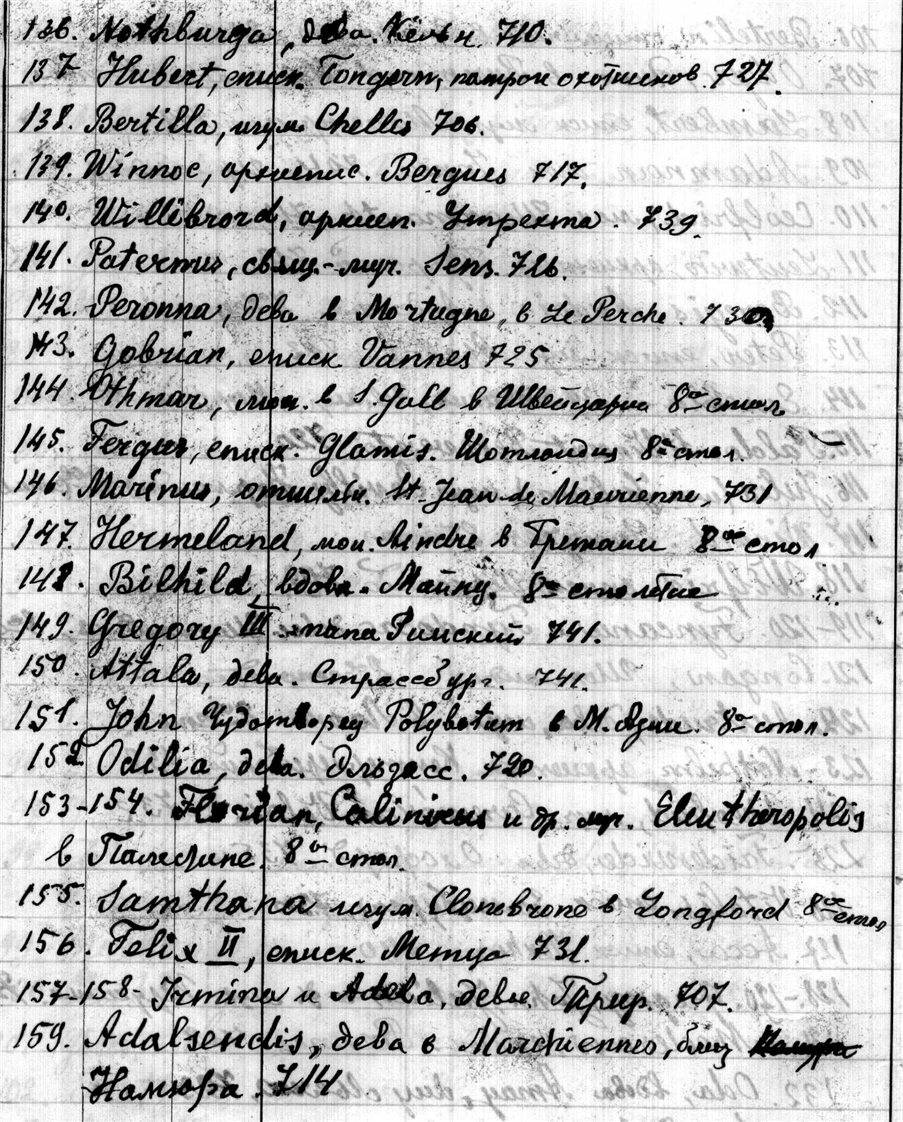 136. Nothburga, дева. Кёльн. 710.
137 Hubert, еписк. Tongern, патрон охотников 727.
138. Bertilla, игум. Chelles 706.
139. Winnoc, архиепис. Bergues 717.
140. Willibrord, архиеп. Утрехта. 739.
141. Paternus, свящ.-муч. Sens. 726.
142. Peronna, дева в Mortagne, в Le Perche. 730
143. Gobrian, еписк Vannes 725
144. Othmar, мон. в S. Gall в Швейцарии 8ое стол.
145. Fergus, еписк. Glamis. Шотландия 8ое стол.
146. Marinus, отшельн. St-Jean de Maurienne, 731
147. Hermeland, мон. Aindre в Бретани 8ое стол
148. Bilhild, вдова. Майнц. 8ое столетие
149. Gregory III папа Римский 741.
150. Attala, дева. Страссбург. 741.
151. John Чудотворец Polybotum в М. Азии. 8ое стол.
152 Odilia, дева. Эльзасс. 720.
153-154. Florian, Calinicus и др. мч. Eleutheropolis
в Палестине. 8ое стол.
155. Samthana игум. Clonebrone в Longford 8ое стол
156. Felix II, еписк. Метца 731.
157-158- Irmina и Adela, девы. Трир. 707.
159. Adalsendis, дева в Marchiennes, близ
Намюра. 714